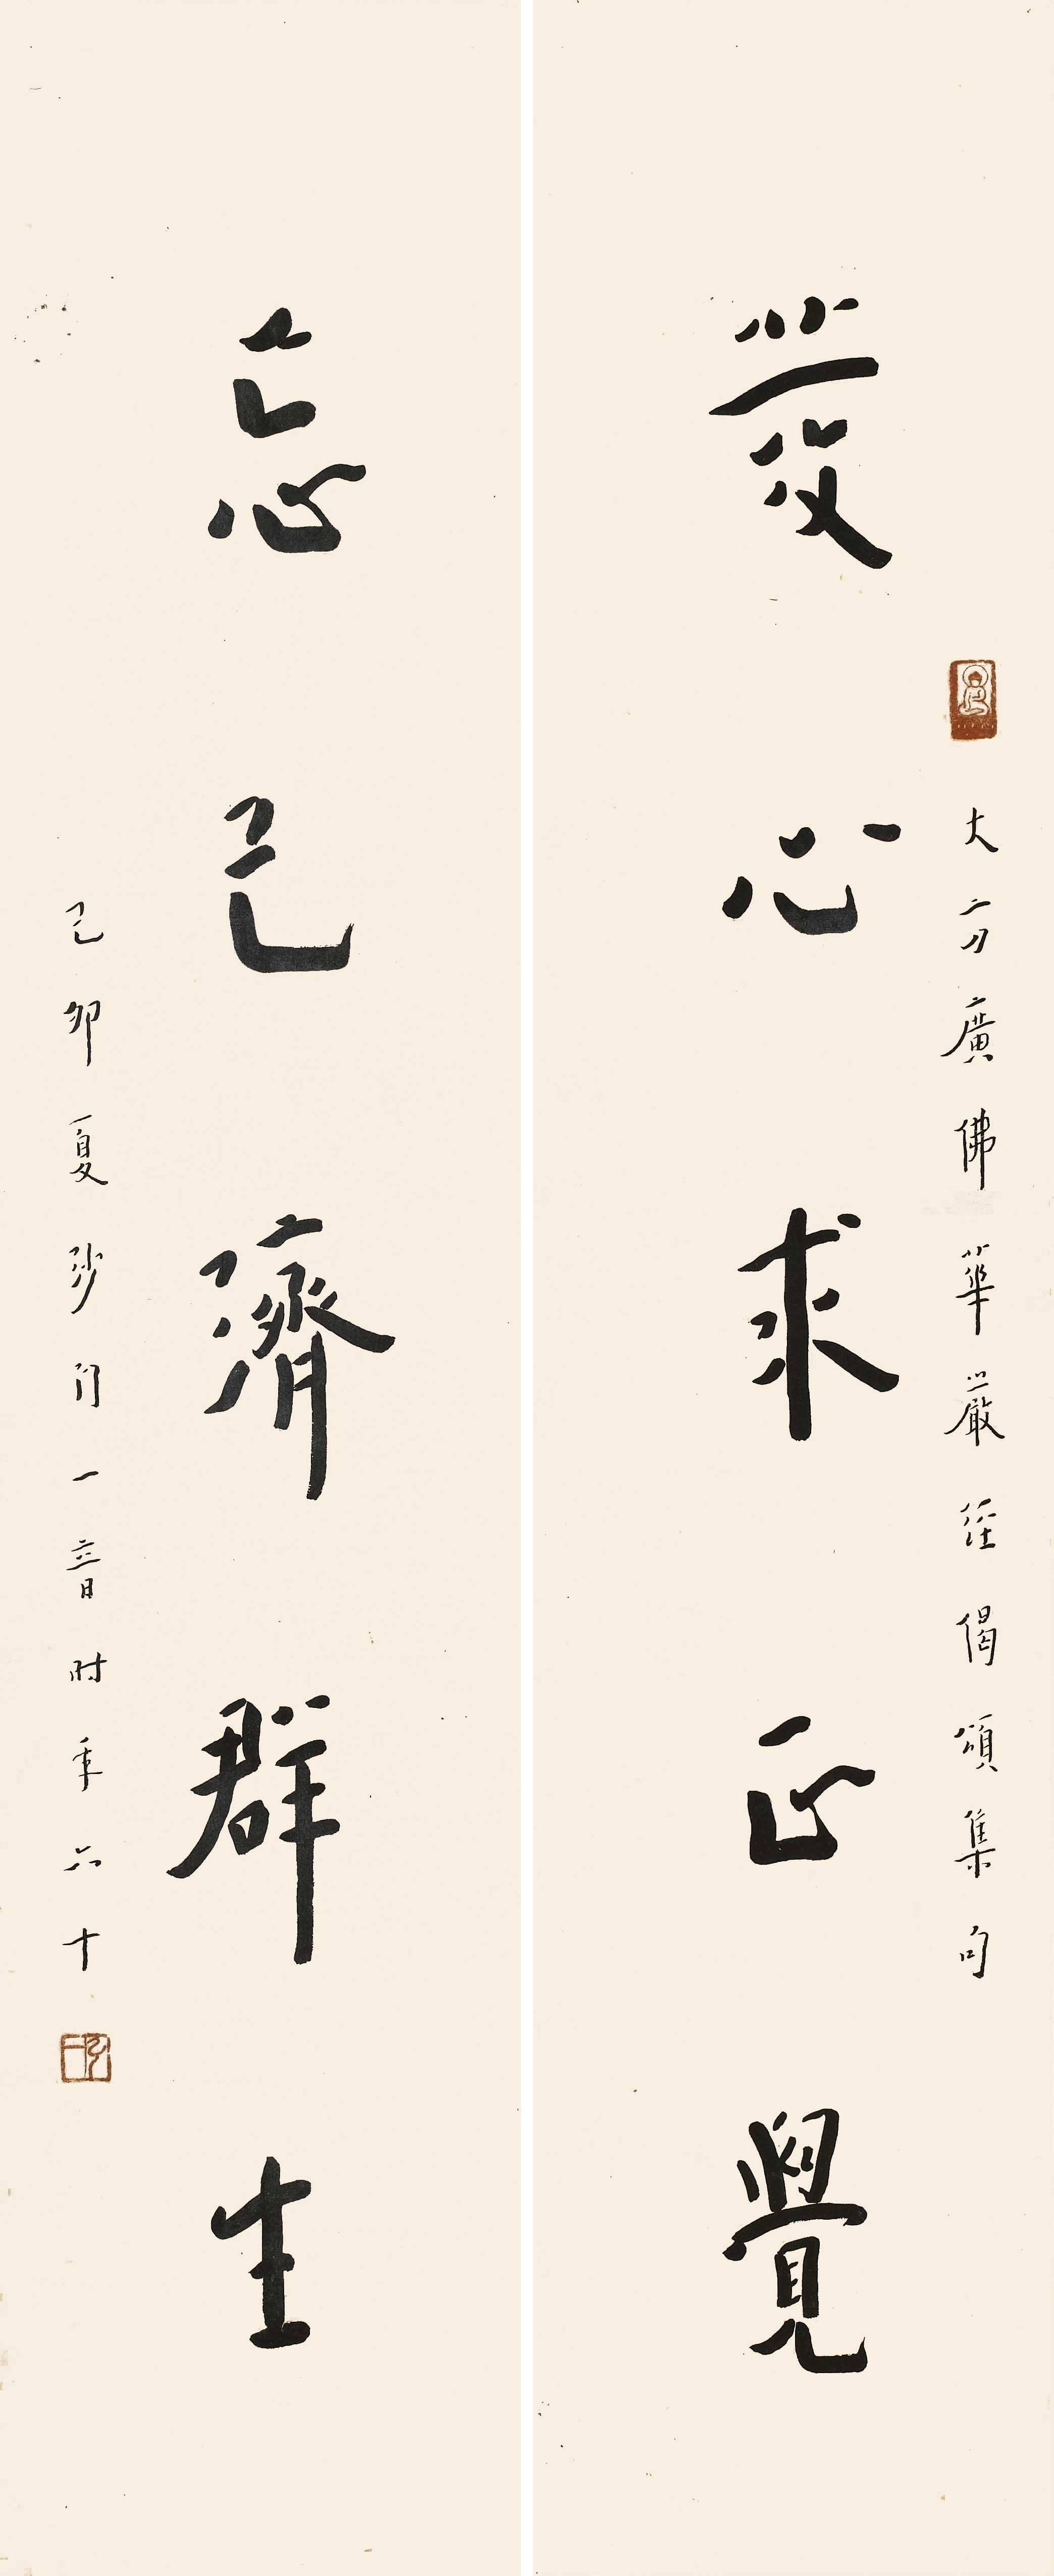 大方廣佛華嚴經偈頌集句
發心求正覺
忘己濟群生
己卯夏沙門一音時年六十